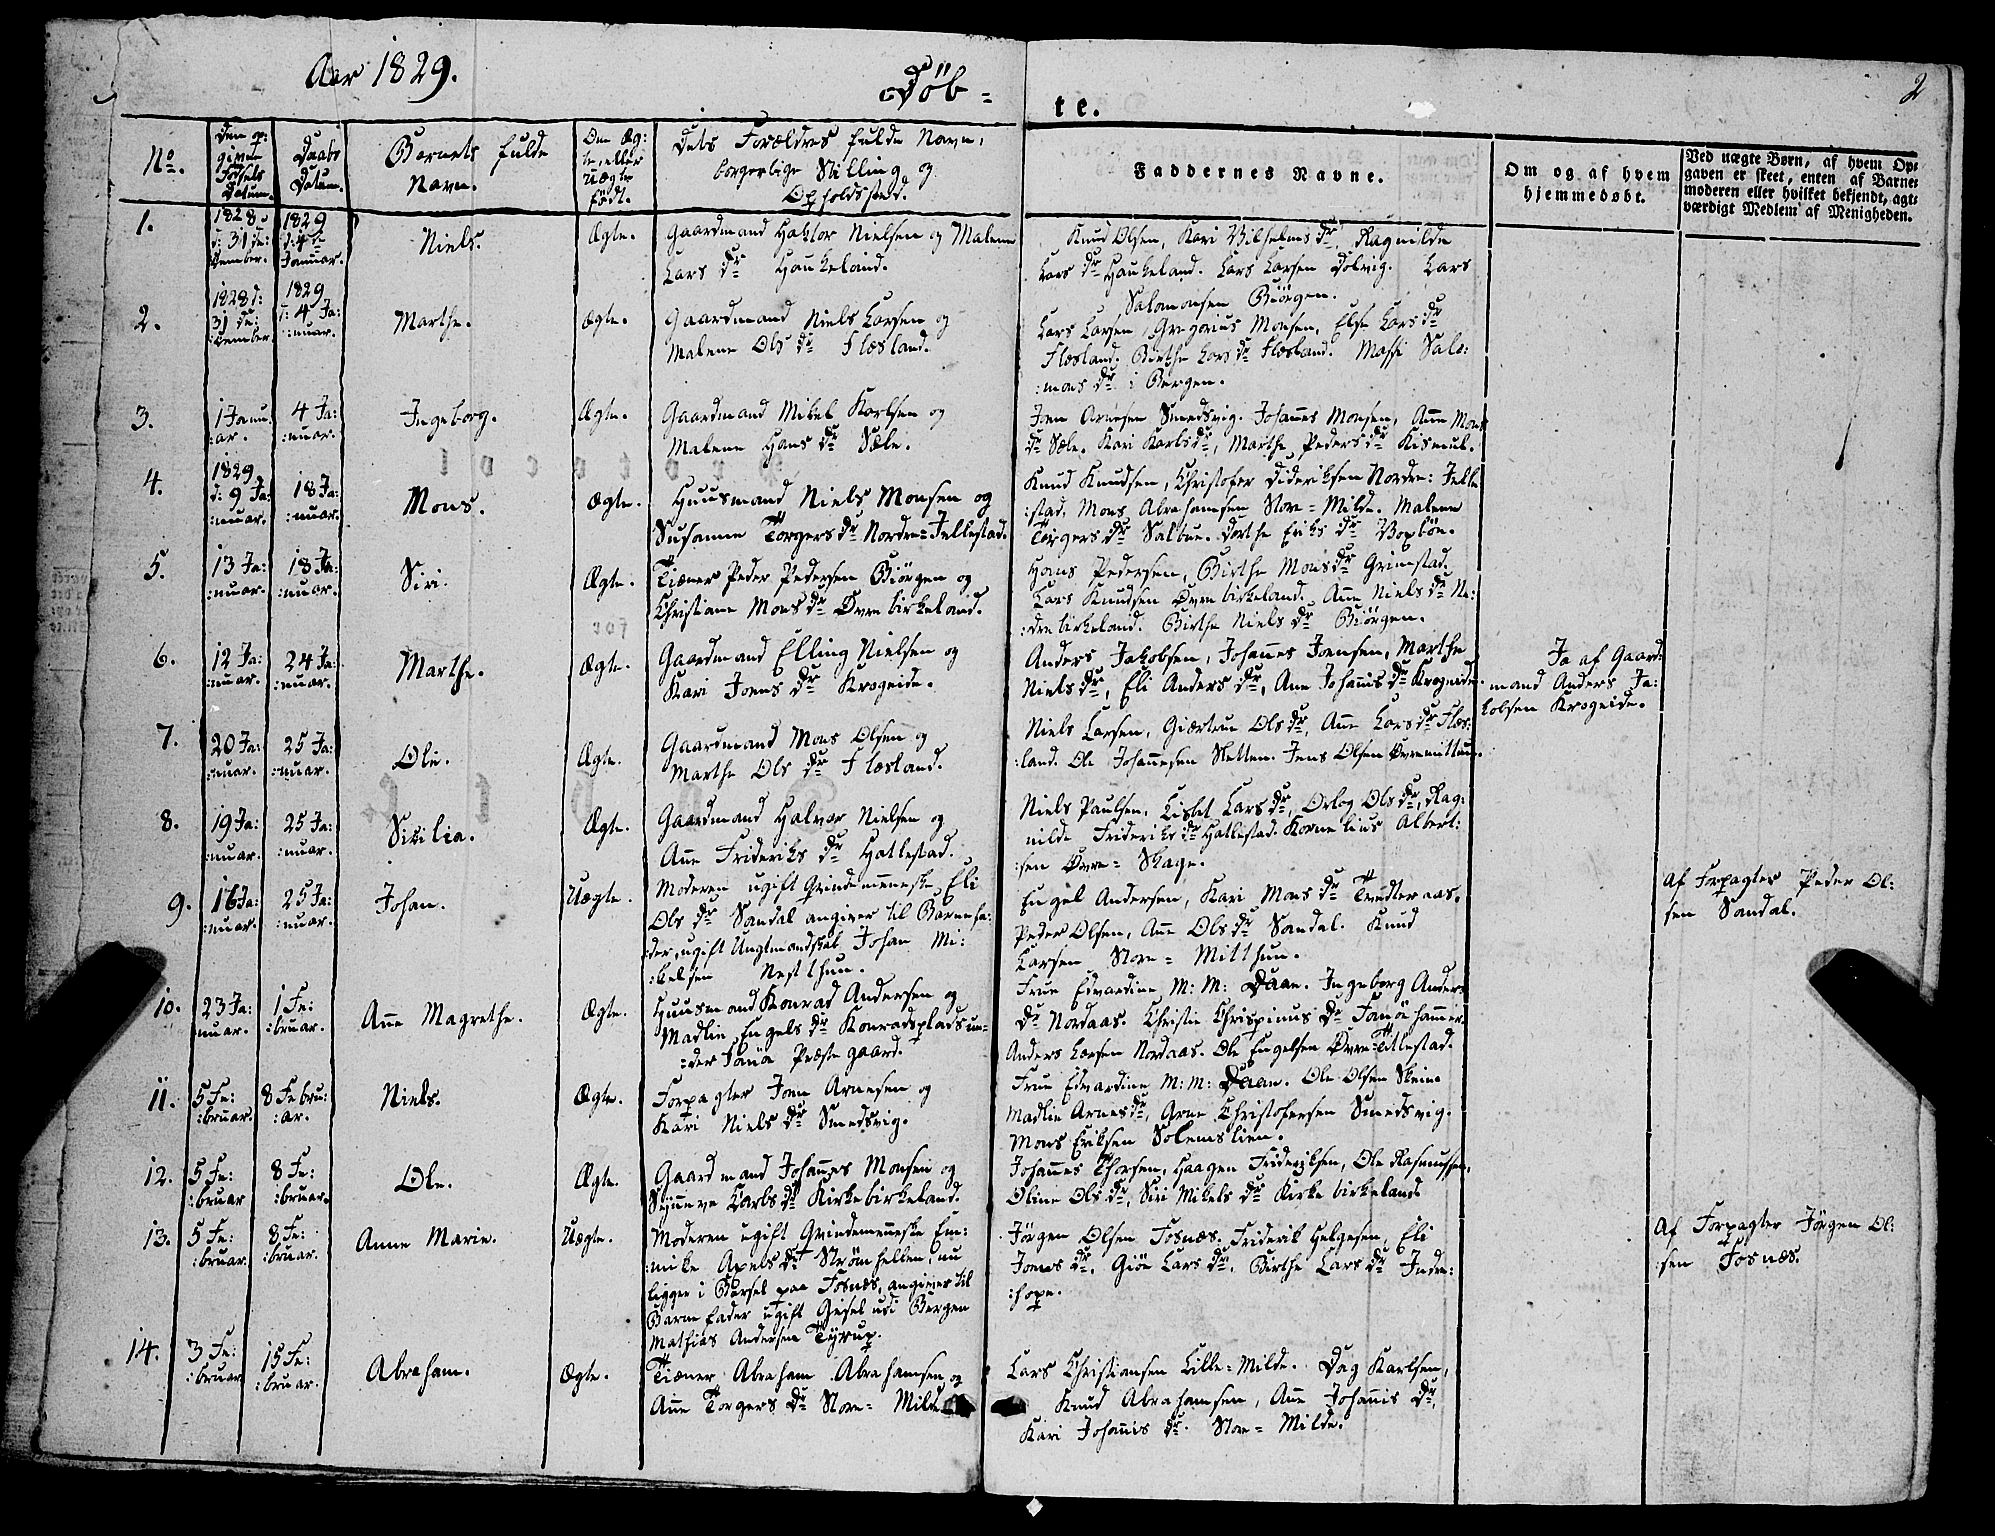 Aar 1829.
Döb-
te.
2
No.
Den op:
given
Fødsels
Datum.
Daabs
Datum.
Barnets fulde
Navn.
Om Æg:
te, eller
uægte
født.
Dets Forældres fulde Navn,
borgerlige Stilling og
Opholdssted.
Faddernes Navne.
Om og af hvem
hjemmedøbt.
Ved uægte Børn, af hvem Op-
gaven er skeet, enten af Barne-
moderen eller hvilket bekjendt, agt-
værdigt Medlem af Menigheden.
1.
1828
d: 31 De:
cember.
1829
d: 4de
Januar.
Niels.
Ægte.
Gaardmand Haktor Nielsen og Malene
Lars dr Haukeland.
Knud Olsen, Kari Vilhelms dr, Ragnilde
Lars dr Haukeland. Lars Larsen Dolvig. Lars
Salomonsen Biörgen.
2.
1828 d:
31 De:
cember
1829
d: 4 Ja:
:nuar.
Marthe.
Ægte.
Gaardmand Niels Larsen og
Malene Ols dr Flæsland.
Lars Larsen, Gregorius Monsen, Else Lars dr
Flæsland. Birthe Lars dr Flæsland. Massi Salo:
:mons dr i Bergen.
3.
1 Janu:
:ar.
4 Ja:
:nuar.
Ingeborg.
Ægte.
Gaardmand Mikel Karlsen og
Malene Hans dr Sæle.
Joen Arnesen Smedsvig. Johannes Monsen, Anne Mons
dr Sæle. Kari Karls dr, Marthe Peders dr Kismul.
4.
1829
d: 9 Ja:
:nuar.
18 Ja:
:nuar.
Mons.
Ægte.
Huusmand Niels Monsen og
Susanne Torgers dr Nordre=Jellestad.
Knud Knudsen, Christofer Dideriksen Nordre: Jelle
:stad. Mons Abrahamsen Store=Milde. Malene
Torgers dr Salbue. Dorthe Eriks dr
5.
13 Ja:
:nuar.
18 Ja:
:nuar.
Siri.
Ægte.
Tiener Peder Pedersen Biörgen og
Christiane Mons dr Øvrebirkeland.
Hans Pedersen, Birthe Mons dr Grimstad.
Lars Knudsen Øvrebirkeland. Anne Niels dr Ne:
:drebirkeland. Birthe Niels dr Biörgen.
6.
12 Ja:
:nuar.
24 Ja:
:nuar.
Marthe.
Ægte.
Gaardmand Elling Nielsen og
Kari Joens dr Krogeide.
Anders Jakobsen, Johannes Joensen, Marthe
Niels dr, Eli Anders dr, Ane Johannis dr Krogeide.
Ja af Gaard:
mand Anders Ja:
kobsen Krogeide.
7.
20 Ja:
:nuar.
25 Ja:
:nuar.
Ole.
Ægte.
Gaardmand Mons Olsen og
Marthe Ols dr Flæsland.
Niels Larsen, Giærtrue Ols dr, Anne Lars dr Flæs:
:land. Ole Johannesen Sletten. Jens Olsen Øvremitthun.
8.
19 Ja:
:nuar.
25 Ja:
:nuar.
Sisilia.
Ægte.
Gaardmand Halvor Nielsen og
Anne Frideriks dr Hatlestad.
Niels Paulsen, Lisbet Lars dr, Orlog Ols dr, Rag:
nilde Frideriks dr Hatlestad. Kornelius Albert:
:sen Øvre=Skage.
9.
16 Ja:
:nuar.
25 Ja:
:nuar.
Johan.
Uægte.
Moderen ugift Qvindemenneske Eli
Ols dr Sandal angiver til Barnefa:
:der, ugift Unglmandskal Johan Mi:
:kelsen Nestthun.
Engel Andersen, Kari Mons dr Tvederaas.
Peder Olsen, Anne Ols dr Sandal. Knud
Larsen Store=Mitthun.
Af Forpagter Peder Ol:
sen Sandal.
10.
23 Ja:
nuar.
1 Fe:
:bruar.
Ane Magrethe.
Ægte.
Huusmand Konrad Andersen og
Madlin Engels dr Konradsplads un=
=der Fanöe Præstegaard.
Frue Edvardine M: M: Daae. Ingeborg Anders
dr Nordaas. Christie Chrispinus dr Fanöehammer.
Anders Larsen Nordaas. Ole Engelsen Øvre=Titlestad.
11.
5 Fe:
:bruar.
8 Febru:
:ar.
Niels.
Ægte.
Forpagter Joen Arnesen og
Kari Niels dr Smedsvig.
Frue Edvardine M: M: Daae. Ole Olsen Skeie.
Madlin Arnes dr, Arne Christofersen Smedsvig.
Mons Eriksen Solemslien.
12.
5 Fe:
:bruar
8 Fe:
:bruar.
Ole.
Ægte.
Gaardmand Johannes Monsen og
Synneve Karls dr Kirkebirkeland.
Johannes Thorsen, Haagen Frideriksen, Ole Rasmussen,
Oline Ols dr, Siri Mikels dr Kirkebirkeland
13.
5 Fe:
:bruar
8 Fe:
:bruar.
Anne Marie.
Uægte.
Moderen ugift Qvindemenneske Em:
:mike Axels dr Strömhellen, nu
ligger i Barsel paa Fosnæs, angiver til
Barnefader ugift Gesel udi Bergen
Mathias Andersen Tyrup.
Jörgen Olsen Fosnæs. Friderik Helgesen, Eli
Joens dr, Giöe Lars dr, Birthe Lars dr Indre:
:hope.
Af Forpagter Jörgen Ol:
:sen Fosnæs.
14.
3 Fe:
:bruar
15 Fe:
:bruar.
Abraham.
Ægte.
Tiener Abraham Abrahamsen og
Anne Torgers dr Store=Milde
Lars Christiansen Lille=Milde. Dag Karlsen,
Knud Abrahamsen, Anne Johannis dr,
Kari Johannis dr Store=Milde.